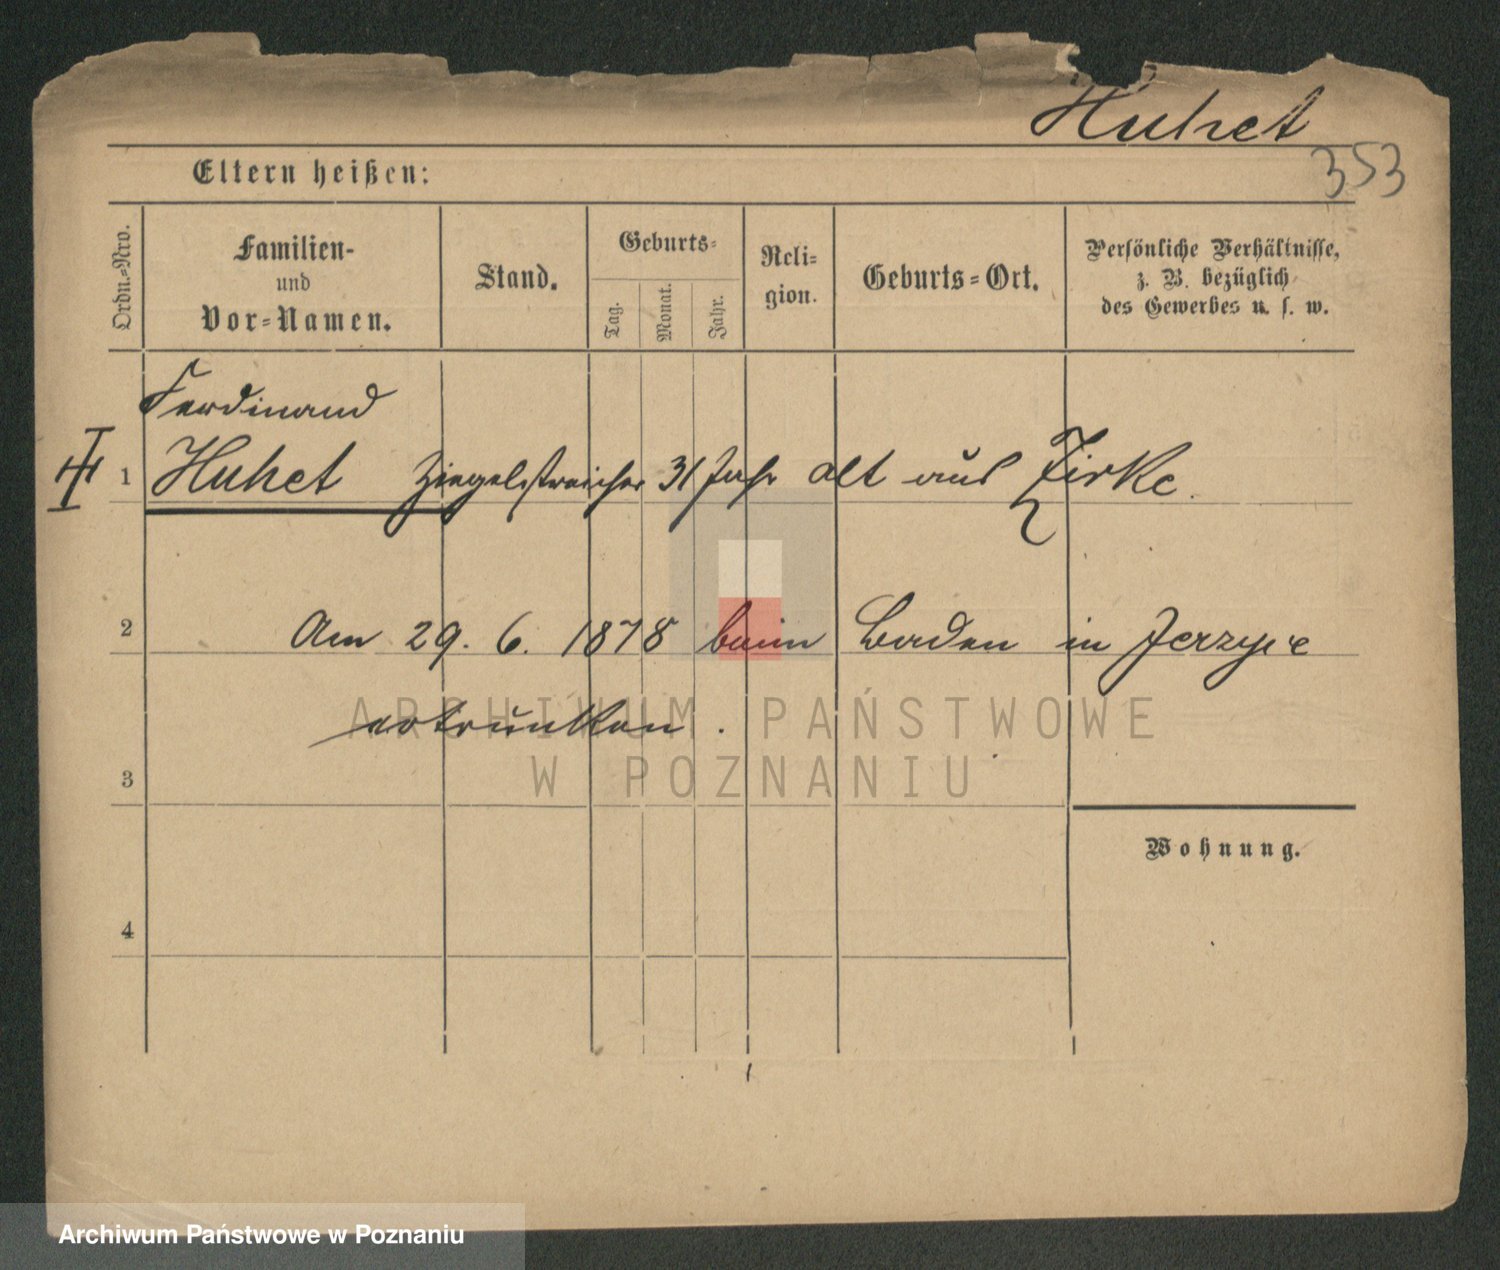 Huhet
353
Eltern heißen:
Ordn.-Nro.
Familien-
und
Vor-Namen.
Stand.
Geburts-
Tag.
Monat.
Jahr.
Reli-
gion.
Geburts-Ort.
Persönliche Verhältnisse,
z. B. bezüglich
des Gewerbes u. s. w.
Ferdinand
1 Huhet Ziegelstreicher 31 Jahr alt aus Zirke.
2 Am 29. 6. 1878 beim Baden in Jerzyce
ertrunken.
3
Wohnung.
4
ARCHIWUM PAŃSTWOWE
W POZNANIU
Archiwum Państwowe w Poznaniu